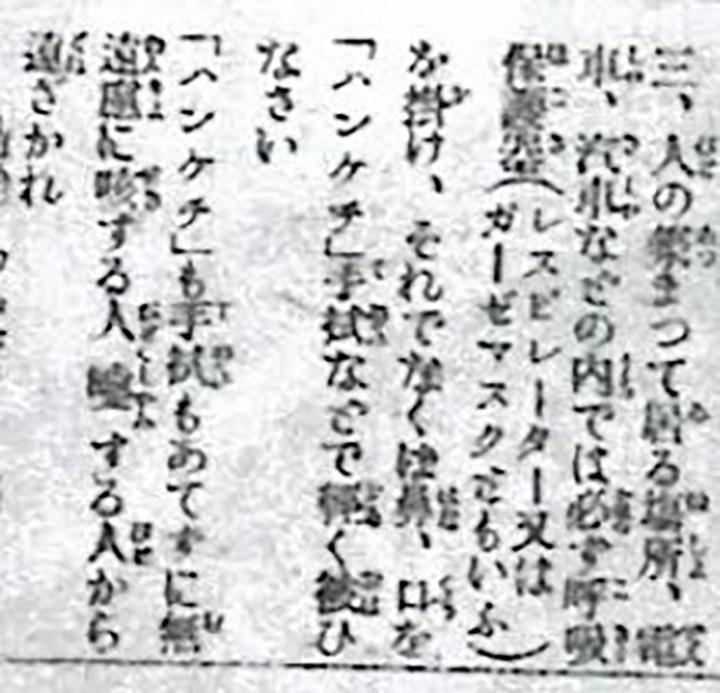 三、人の集まつて居る場所、電
車、汽車などの内では必ず呼吸
保護器(レスピレーター又は
ガーゼマスクともいふ)
を掛け、それでなくば鼻、口を
「ハンケチ」手拭などで軽く被ひ
なさい
「ハンケチ」も手拭もあてずに無
遠慮に咳する人 嚏する人から
遠さかれ